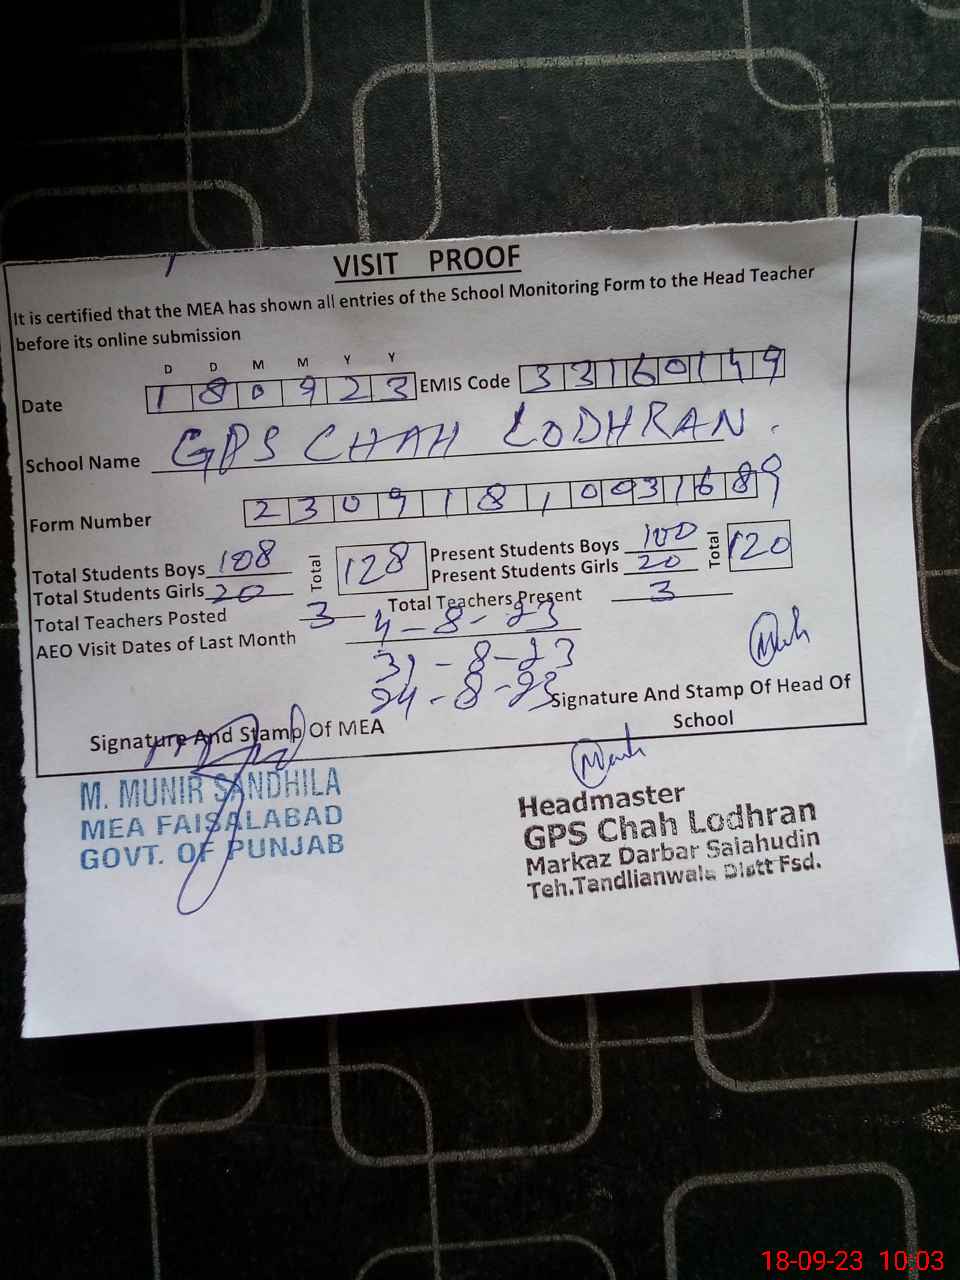 VISIT PROOF
It is certified that the MEA has shown all entries of the School Monitoring Form to the Head Teacher
before its online submission
D D M M Y Y
Date 180923 EMIS Code 33160149
School Name GPS CHAH LODHRAN.
Form Number 230918,00931689
Total Students Boys 108 Total 128 Present Students Boys 100 Total 120
Total Students Girls 20 Present Students Girls 20
Total Teachers Posted 3 Total Teachers Present 3
AEO Visit Dates of Last Month 4-8-23
31-8-23
24-8-23
Signature And Stamp Of MEA
Signature And Stamp Of Head Of
School
M. MUNIR SANDHILA
MEA FAISALABAD
GOVT. OF PUNJAB
Headmaster
GPS Chah Lodhran
Markaz Darbar Salahudin
Teh.Tandlianwala Distt Fsd.
18-09-23 10:03